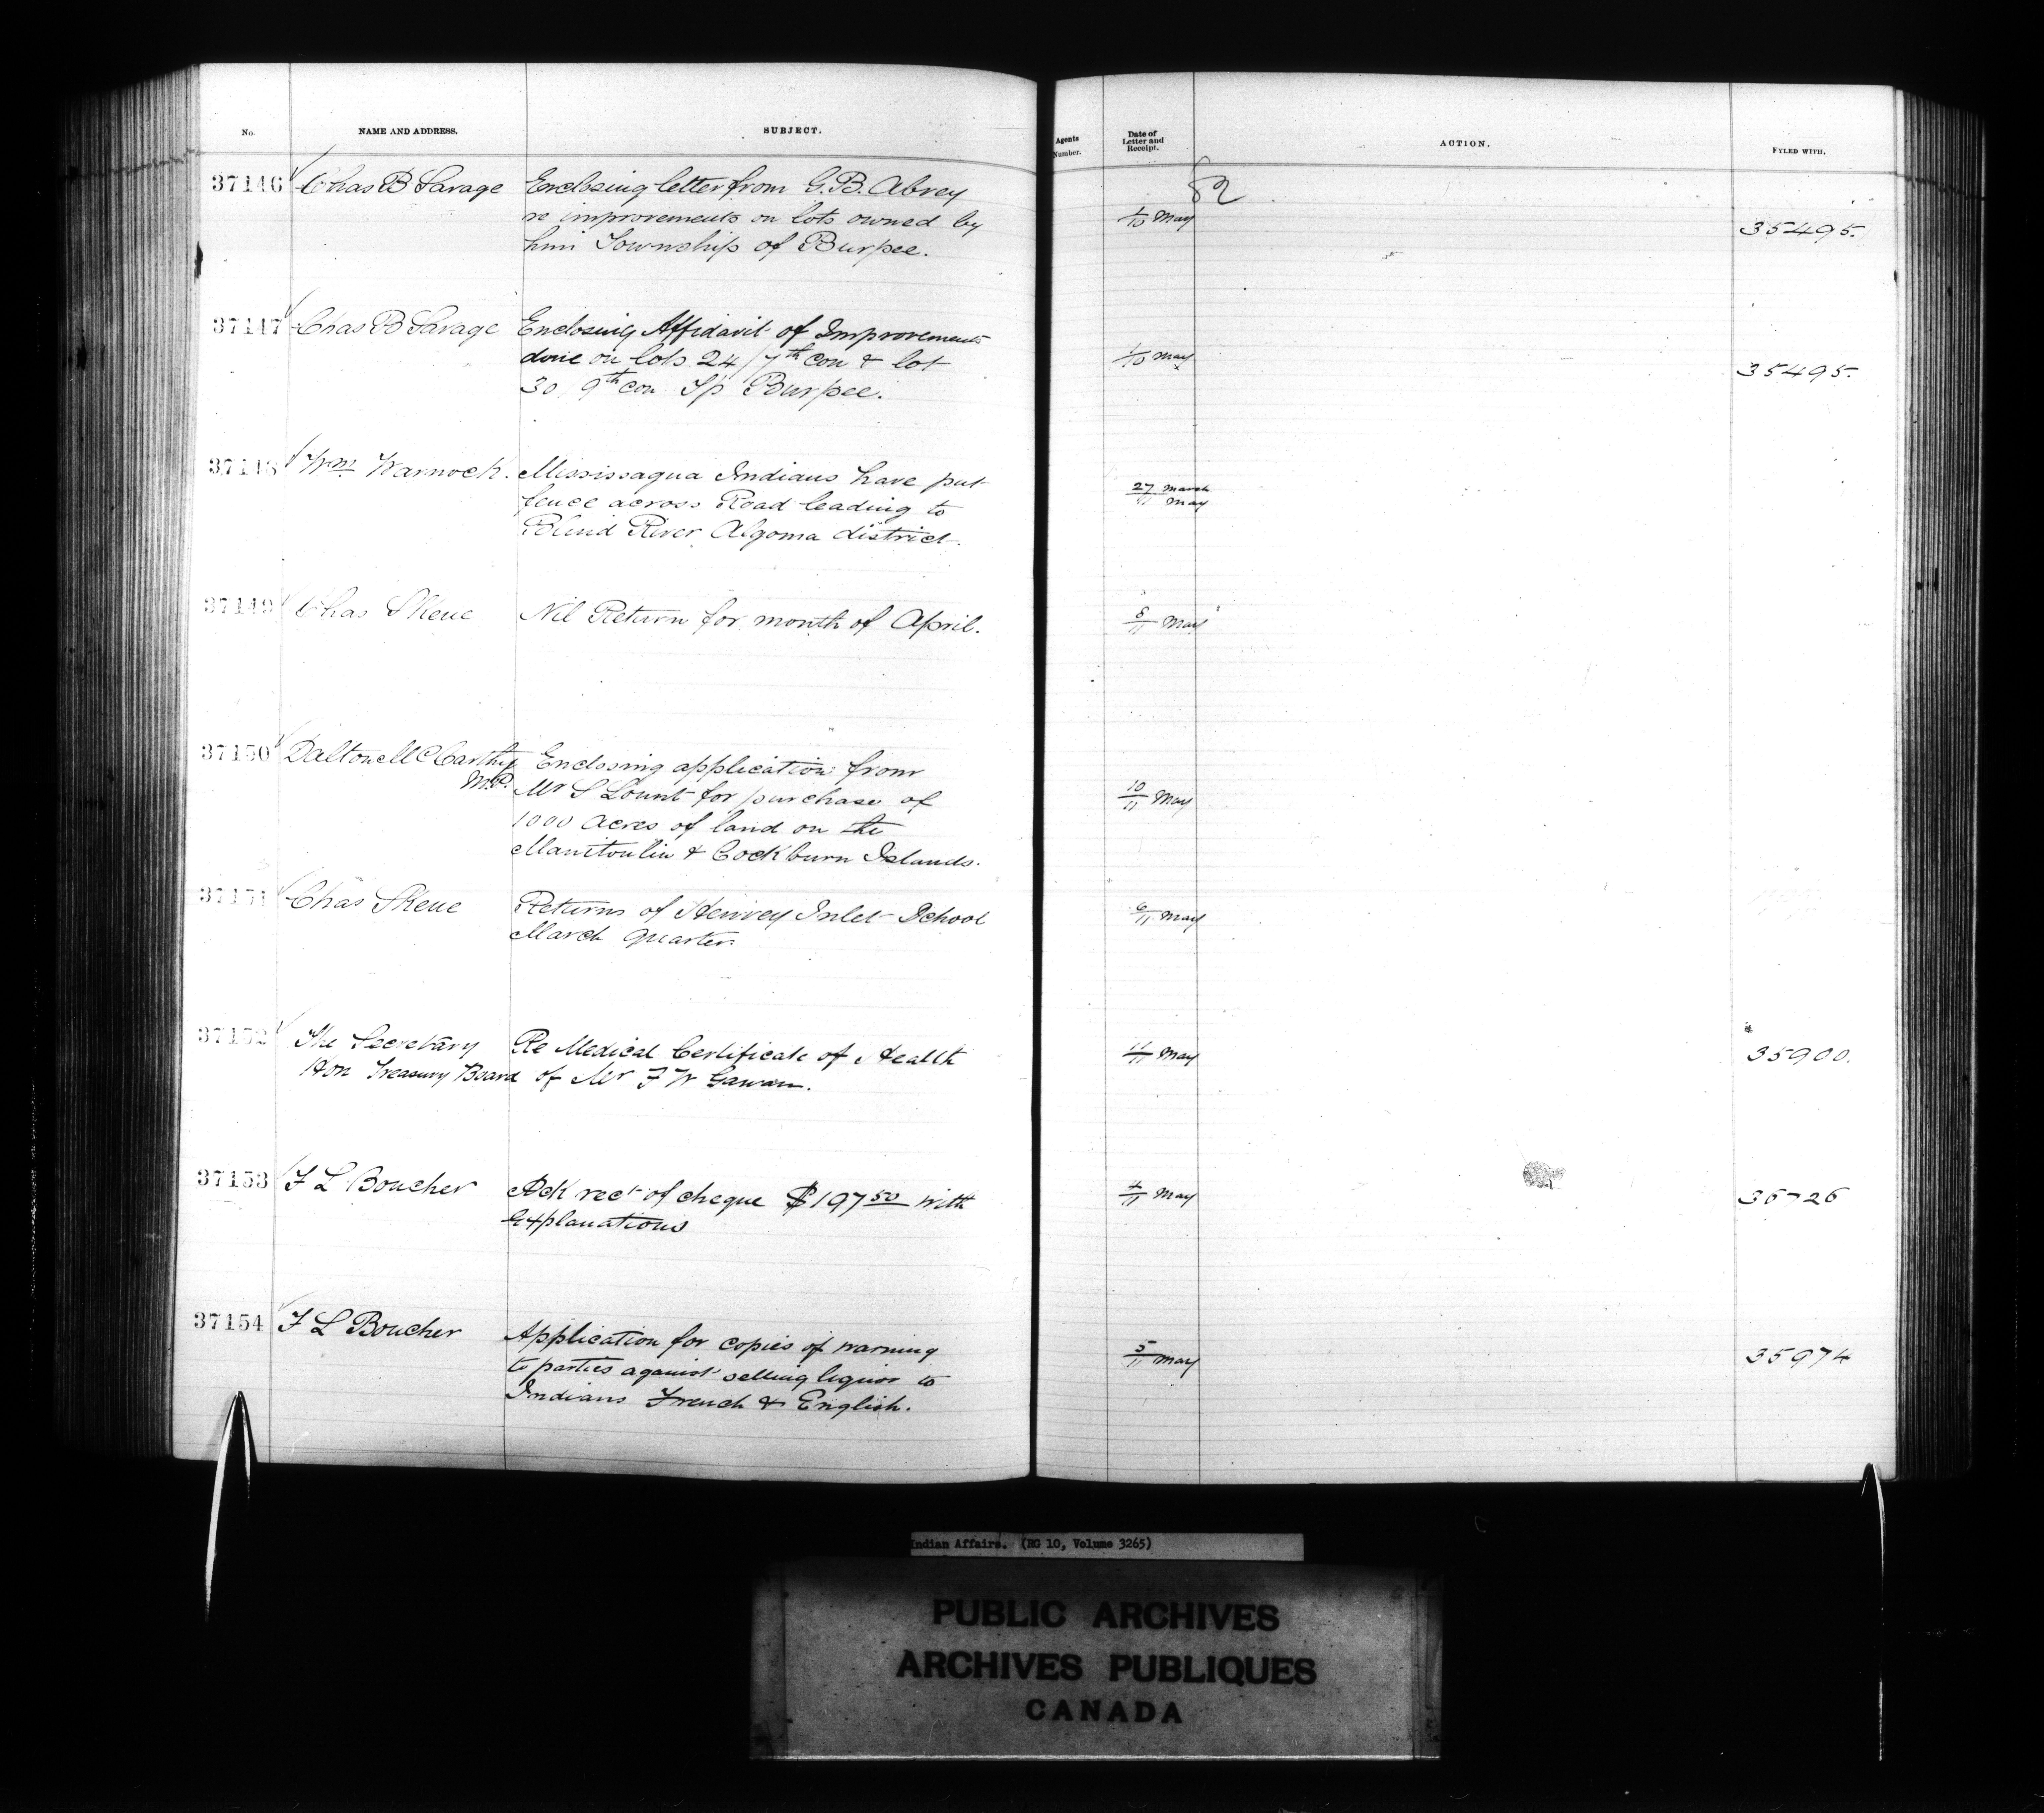 No. NAME AND ADDRESS. SUBJECT. Agents Number. Date of Letter and Receipt. ACTION. FYLED WITH.
82
37146 Chas B Savage Enclosing letter from G. B. Abrey
re improvements on lots owned by 1/10 May 35495.
him Township of Burpee.
37147 Chas B Savage Enclosing Affidavit of Improvements
done on lots 24/7th con & lot 1/10 May 35495.
30 9th con Tp Burpee.
37148 Wm Warnock. Mississaqua Indians have put
fence across Road leading to 27 March 11 May
Blind River Algoma district.
37149 Chas Skene Nil Return for month of April. 5/11 May
37150 Dalton McCarthy Enclosing application from
M.P. Mr S Lount for purchase of 10/11 May
1000 acres of land on the
Manitoulin & Cockburn Islands.
37151 Chas Skene Returns of Henvey Inlet School 6/11 May
March Quarter.
37152 The Secretary Re Medical Certificate of Health 11/11 May 35900.
Hon Treasury Board of Mr F W
37153 F L Boucher Ack rect of cheque $197 50 with 4/11 May 36726
Explanations
37154 F L Boucher Application for copies of warning
to parties against selling liquor to 5/11 May 35974
Indians French & English.
Indian Affairs. (RG 10, Volume 3265)
PUBLIC ARCHIVES
ARCHIVES PUBLIQUES
CANADA